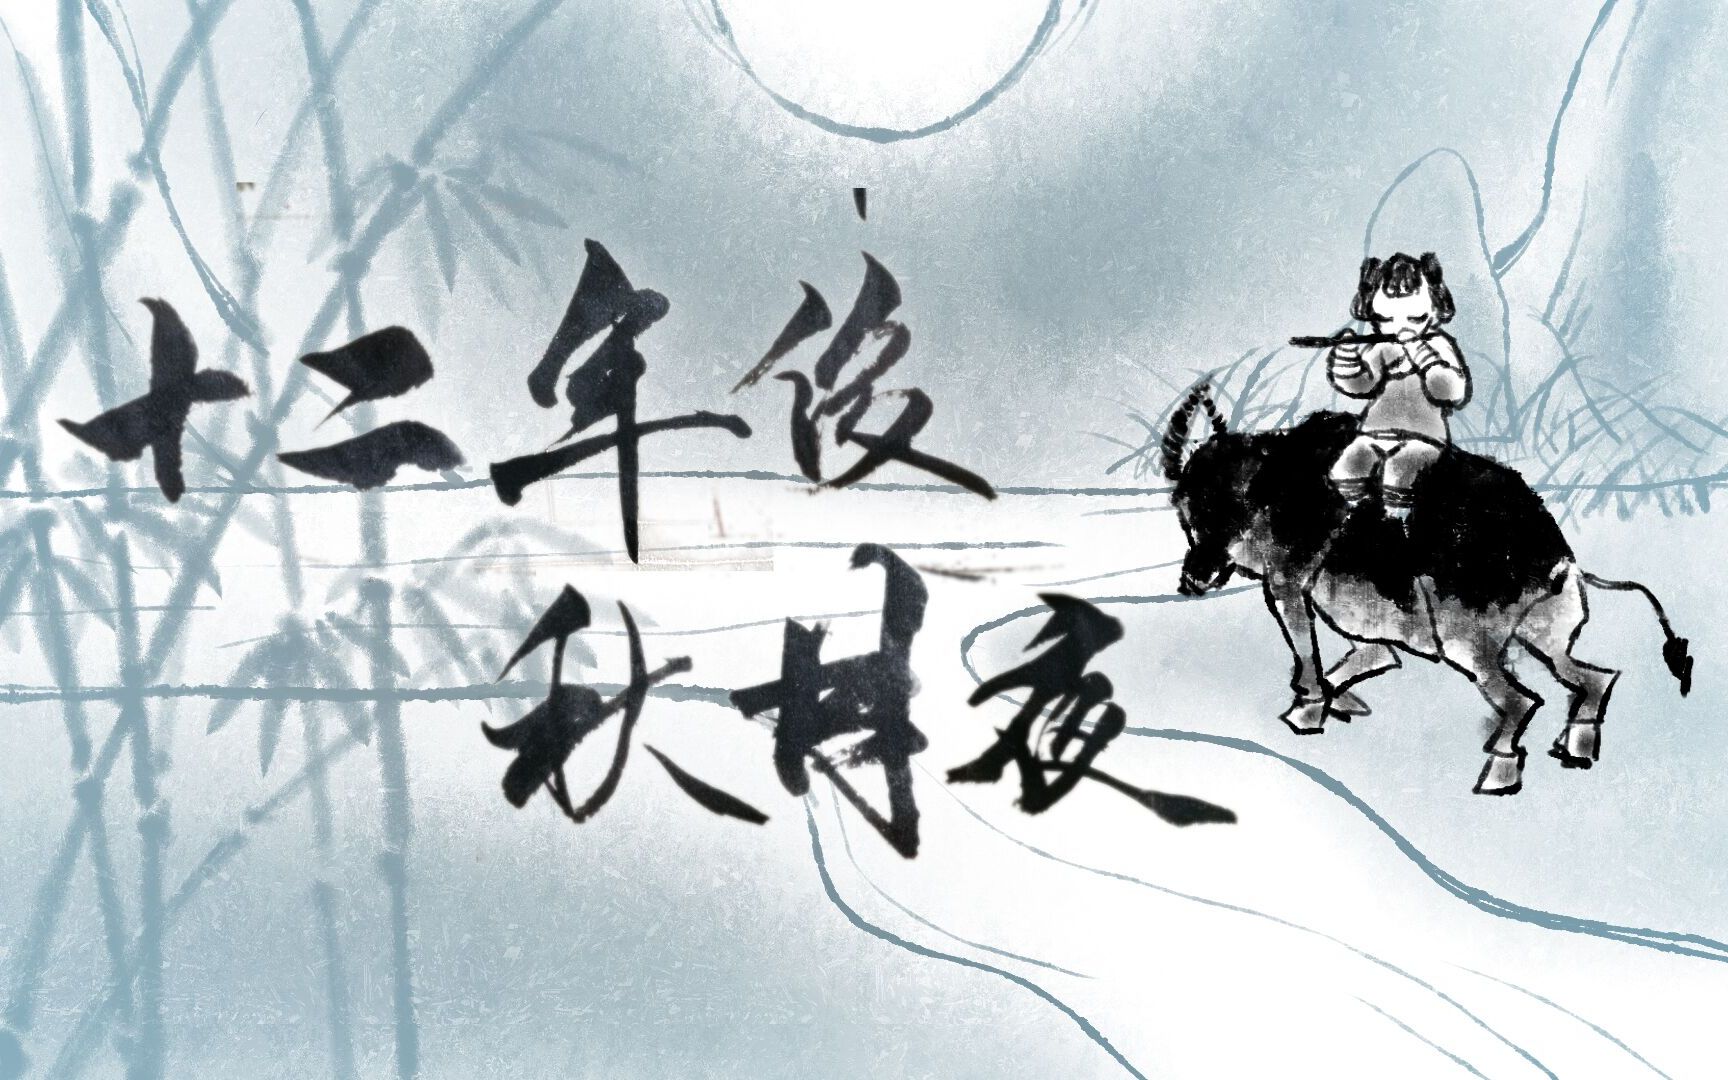 十二年後
秋月夜